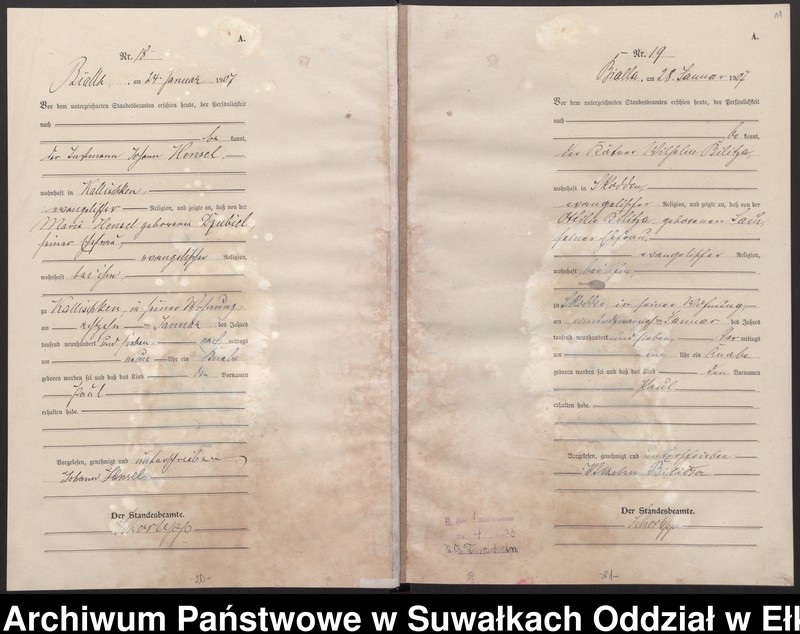 A.
Nr. 18
Bialla, am 24. Januar 1907
Vor dem unterzeichneten Standesbeamten erschien heute, der Persönlichkeit
nach
be kannt,
der Instmann Johann Hensel,
wohnhaft in Kallischken,
evangelischer Religion, und zeigte an, daß von der
Marie Hensel geborenen Dzubiel,
seiner Ehefrau,
evangelischer Religion,
wohnhaft bei ihm,
zu Kallischken, in seiner Wohnung,
am Januar des Jahres
tausend neunhundert und sieben nach mittags
um neun Uhr ein Knabe
geboren worden sei und daß das Kind den Vornamen
Paul
erhalten habe.
Vorgelesen, genehmigt und unterschrieben
Johann Hensel
Der Standesbeamte.
-20-
11
A.
Nr. 19
Bialla, am 28. Januar 1907
Vor dem unterzeichneten Standesbeamten erschien heute, der Persönlichkeit
nach
be kannt,
der Kätner Wilhelm Bilitza,
wohnhaft in Skodden,
evangelischer Religion, und zeigte an, daß von der
Ottilie Bilitza, geborenen
seiner Ehefrau,
evangelischer Religion,
wohnhaft bei ihm
zu Skodden in seiner Wohnung
am Januar des Jahres
tausend neunhundert und sieben, vor mittags
um ein Uhr ein Knabe
geboren worden sei und daß das Kind den Vornamen
Paul
erhalten habe.
Vorgelesen, genehmigt und unterschrieben
Wilhelm Bilitza
Der Standesbeamte.
-21-
Archiwum Państwowe w Suwałkach Oddział w Ełk